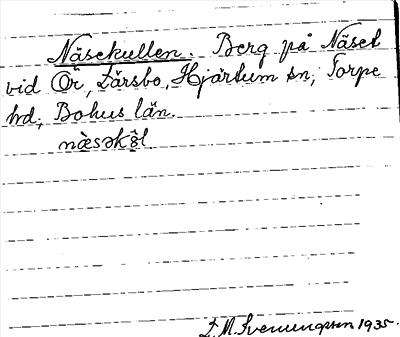 Näsekullen. Berg på Näset
vid Ör, Lärsbo, Hjärtum sn, Torpe
hd, Bohus län.
næ̀sək
L. M. Svenungsson 1935.